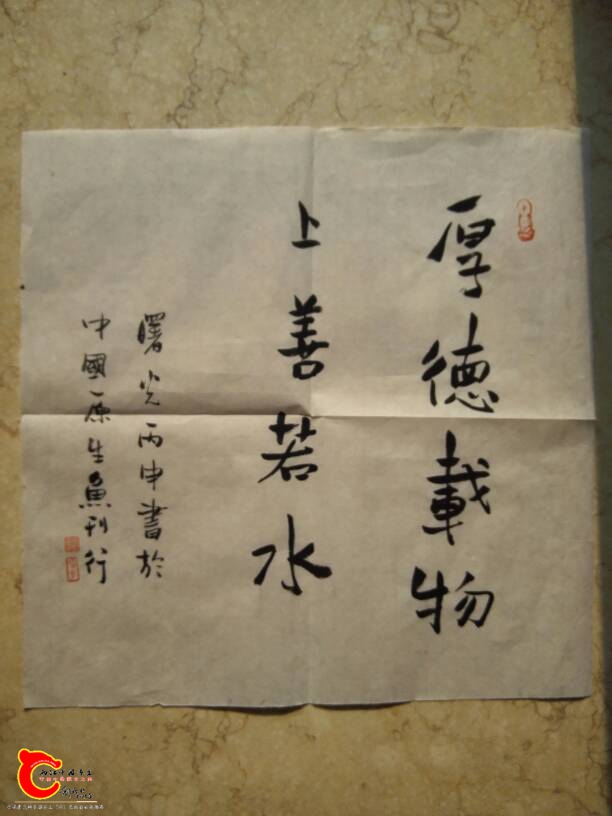 厚德載物
上善若水
曙光丙申書於
中國原生魚刊行